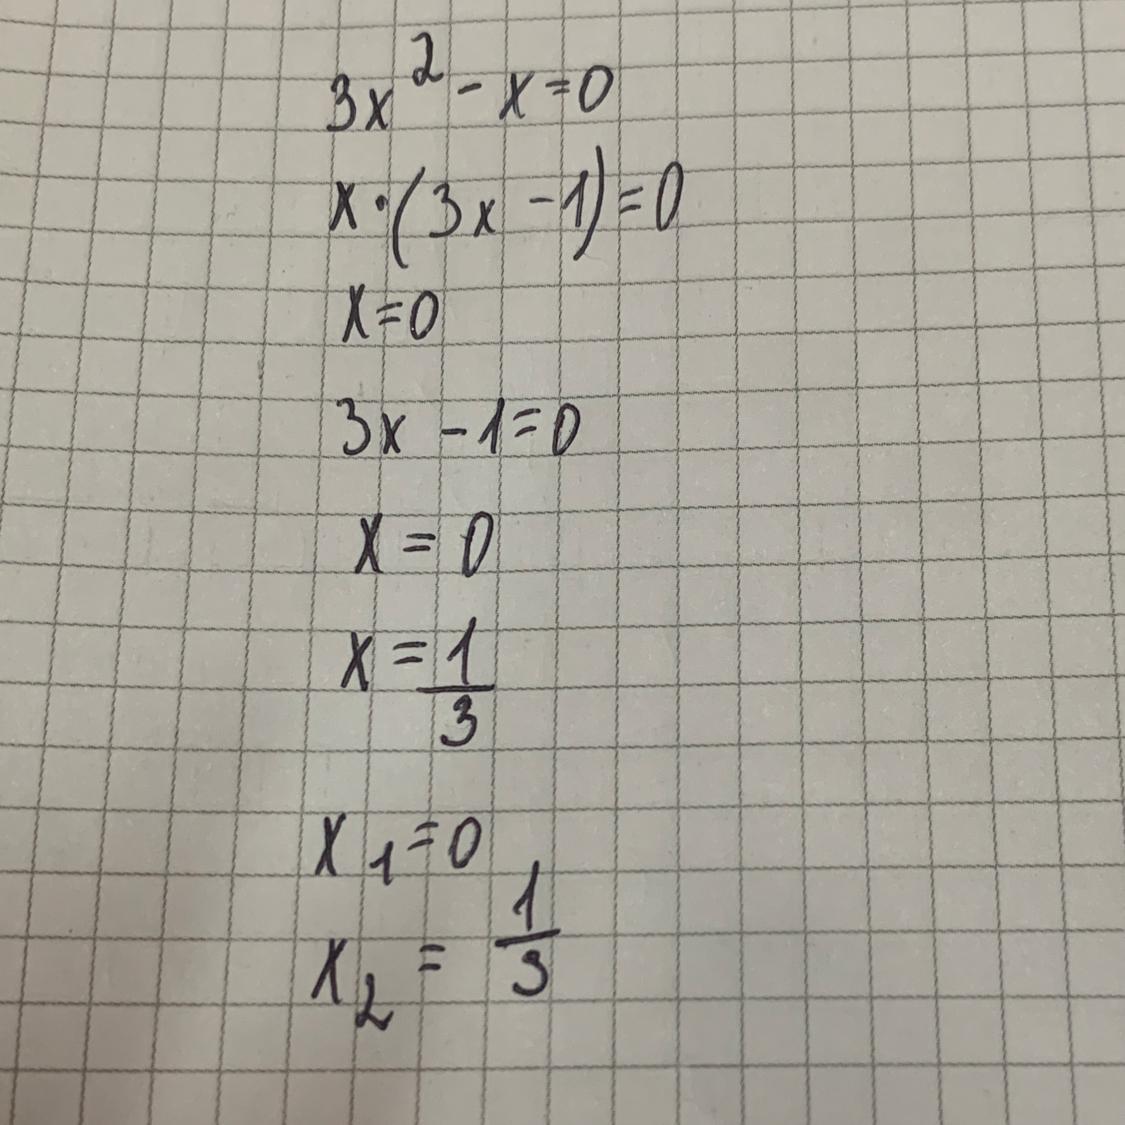 3x² - x = 0
x · (3x - 1) = 0
x = 0
3x - 1 = 0
x = 0
x = 1/3
x₁ = 0
x₂ = 1/3